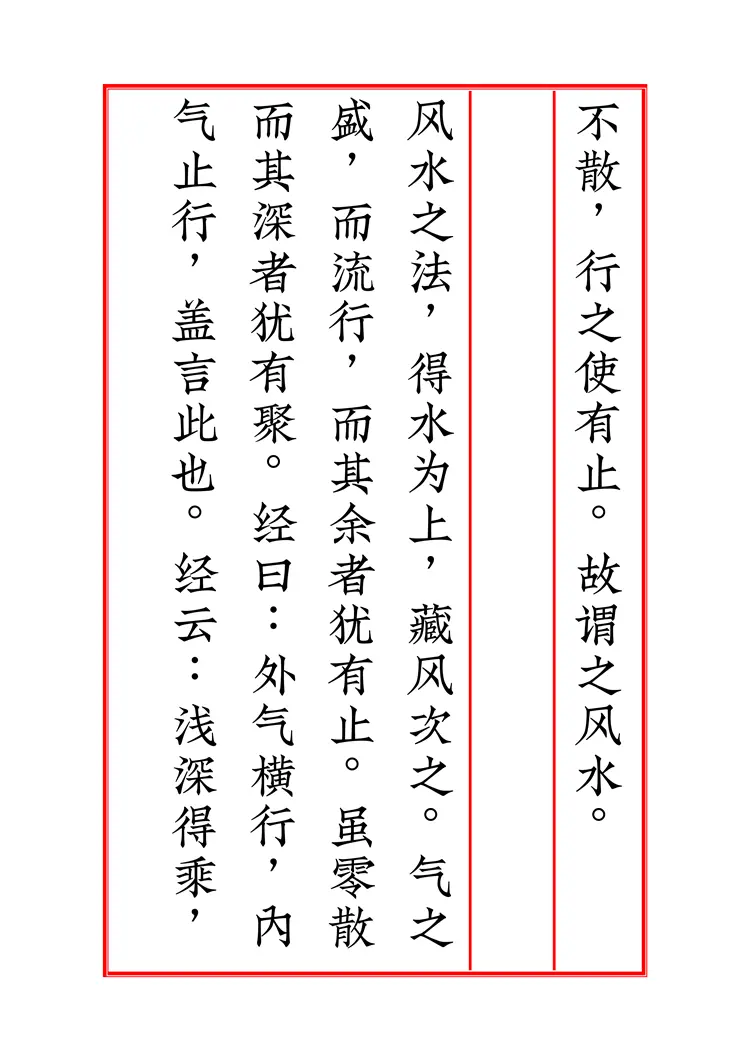 不散，行之使有止。故谓之风水。
风水之法，得水为上，藏风次之。气之
盛，而流行，而其余者犹有止。虽零散
而其深者犹有聚。经曰：外气横行，内
气止行，盖言此也。经云：浅深得乘，